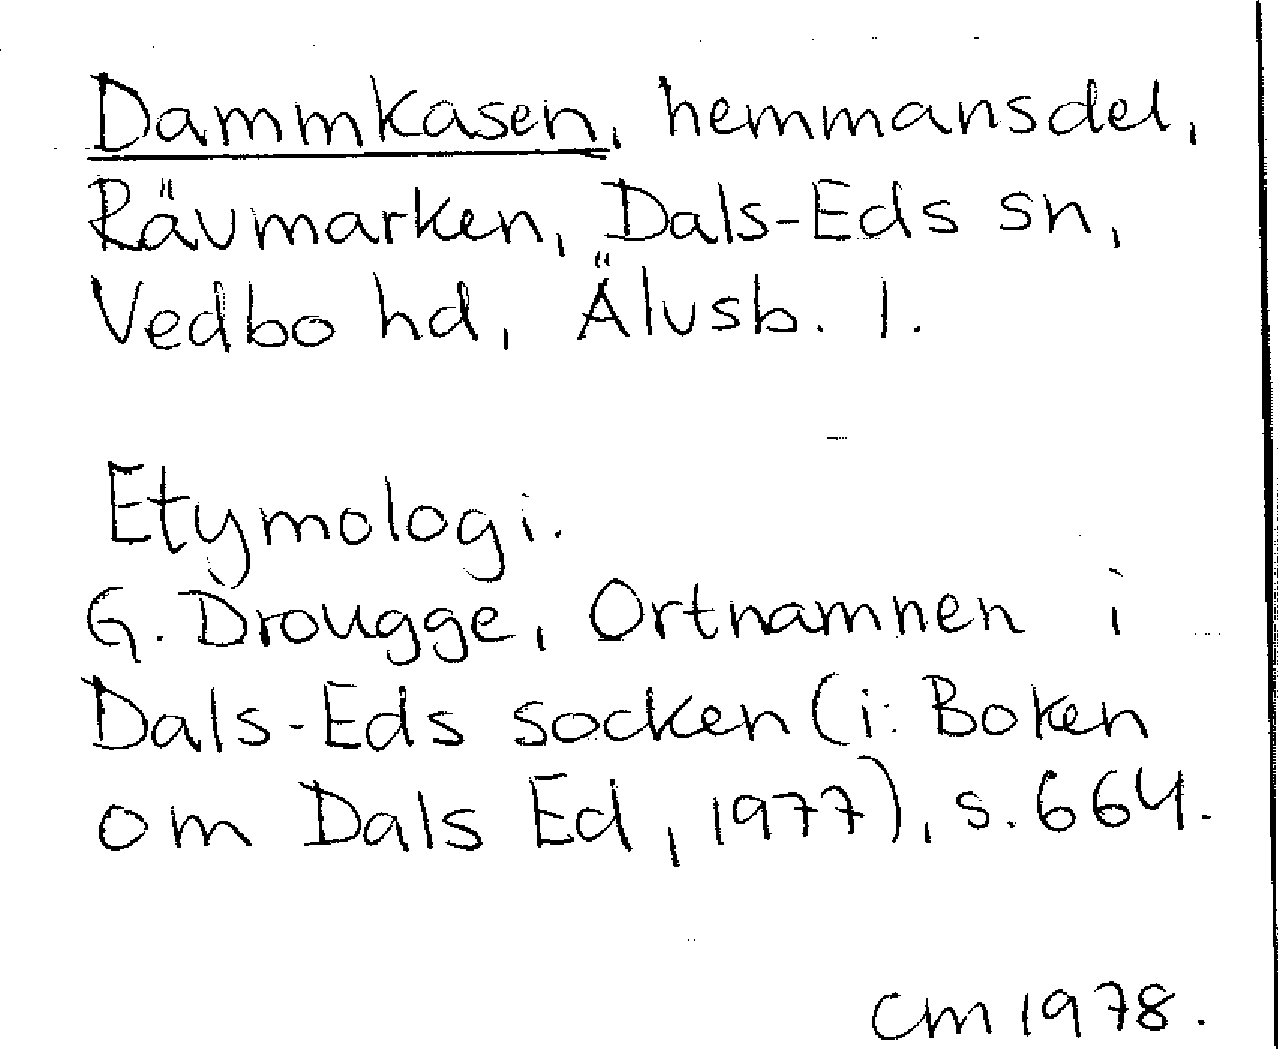 Dammkasen, hemmansdel,
Rävmarken, Dals-Eds sn,
Vedbo hd, Älvsb. l.
Etymologi.
G. Drougge, Ortnamnen i
Dals-Eds socken (i: Boken
om Dals Ed, 1977), s. 664.
CM 1978.